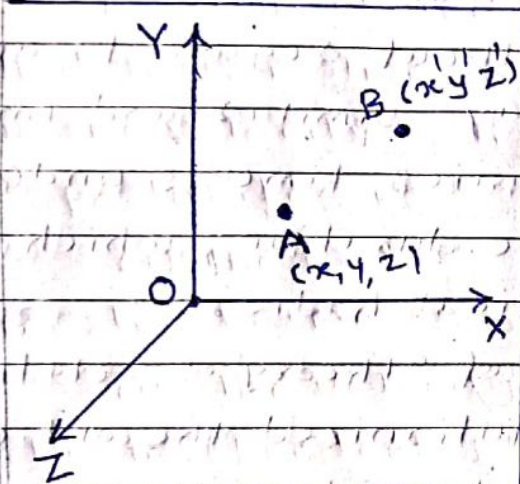 Y
B (x' y' z')
A
(x, y, z)
O
X
Z